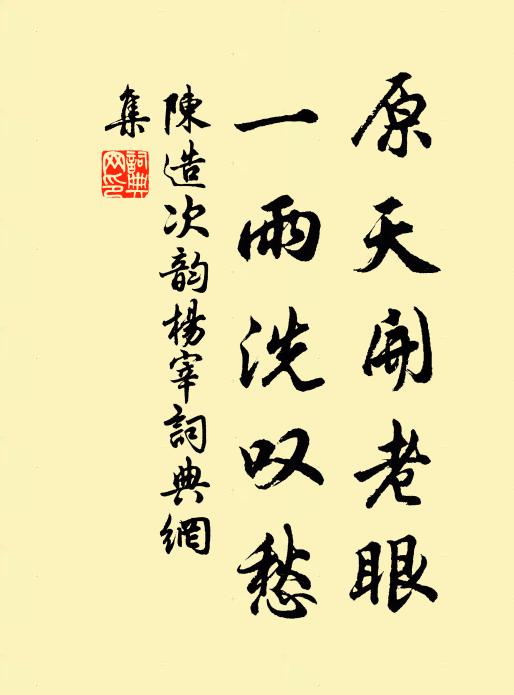 原天開老眼
一雨洗叹愁
陳造次韵楊宰詞典網
集
詞典网印